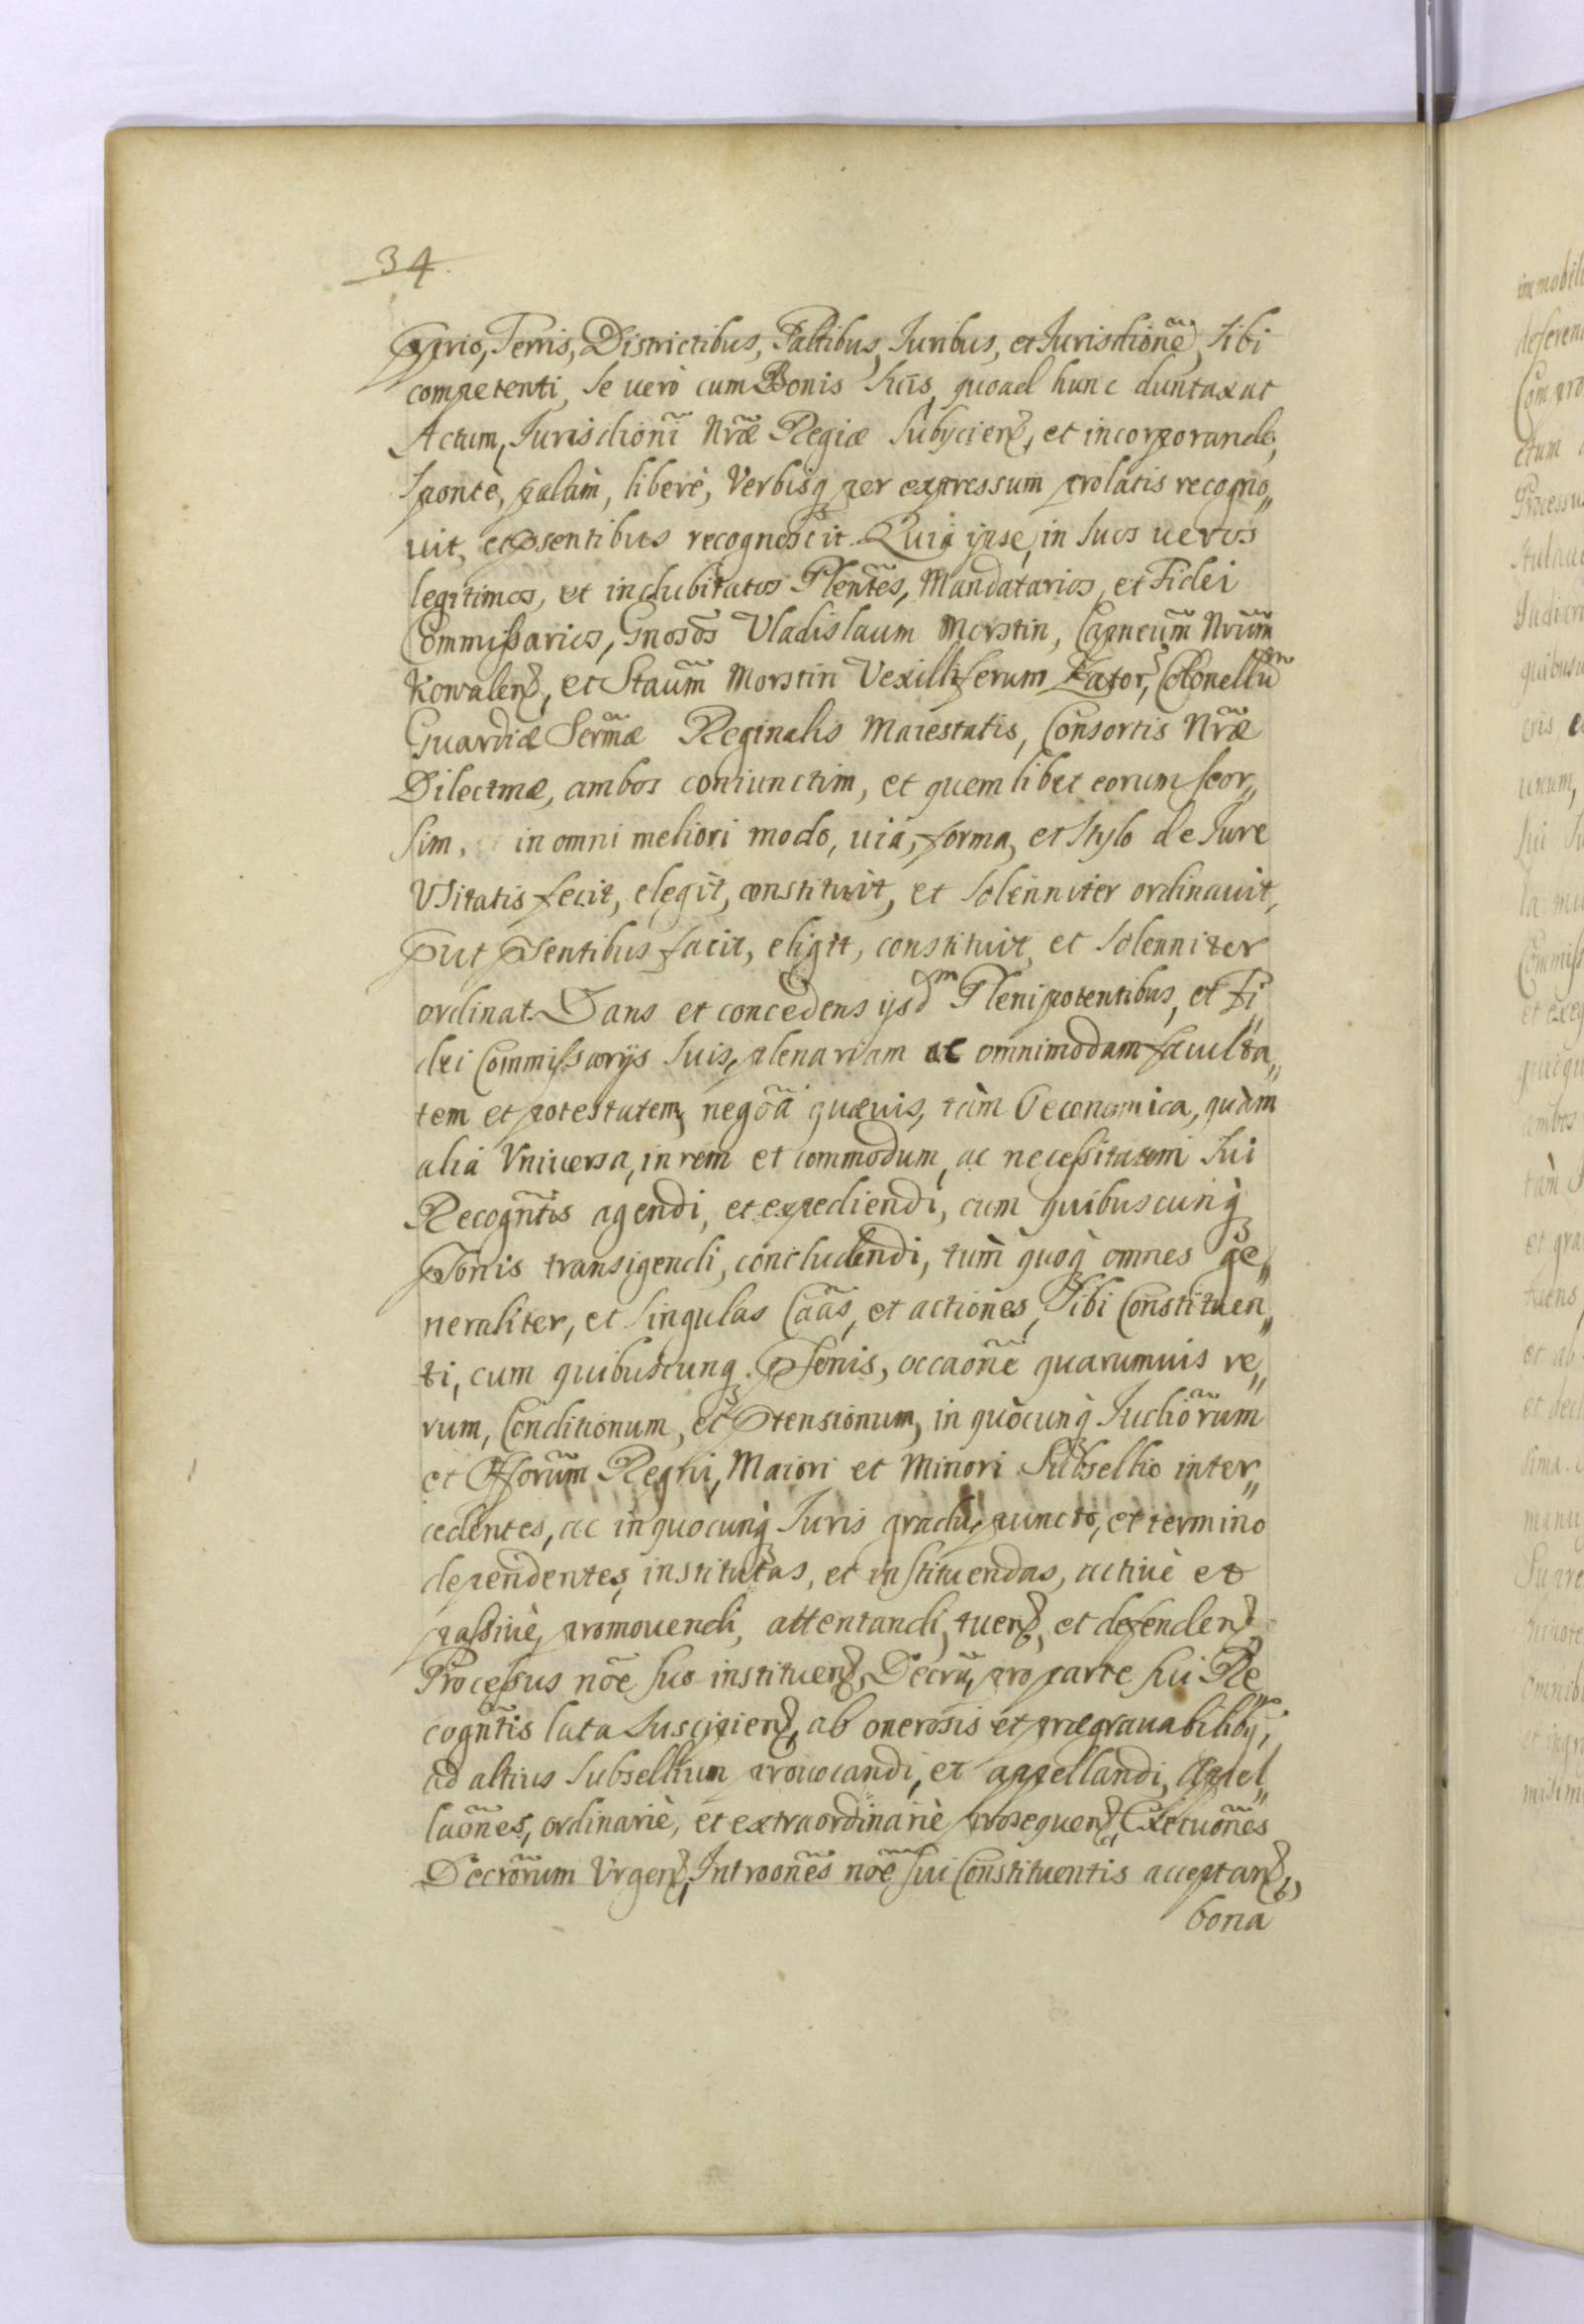 34.
Pprio, Terris, Districtibus, Paltibus, Juribus, et Jurisdione, Sibi
competenti, Se verò cum Bonis Suis, quoad hunc duntaxat
Actum, Jurisdioni Nrae Regiae Subyciens, et incorporando,
Sponte, palàm, liberè, Verbisq per expressum prolatis recogno„
uit, et psentibus recognoscit. Quia ipse, in Suos ueros
legitimos, et indubitatos Plentes, Mandatarios, et Fidei
Commissarios, Gnosos Vladislaum Morstin, Capneum Nrum
Kowalens, et Staum Morstin Vexilliferum Zator, Colonellum
Guardiae Sermae Reginalis Maiestatis, Consortis Nrae
Dilectmae, ambos coniunctim, et quem libet eorum seor„
sim, in omni meliori modo, uiá, forma, et Stylo de Jure
Vsitatis fecit, elegit, constituit, et Solenniter ordinauit,
put psentibus facit, eligit, constituit, et Solenniter
ordinat. Dans et concedens ijsdm Plenipotentibus, et Fi„
dei Commissarijs Suis, plenariam ac omnimodam faculta„
tem et potestatem, negoa quaeuis, tàm Oeconomica, quàm
alia Vniuersa, in rem et commodum, ac necessitatem Sui
Recogntis agendi, et expediendi, cum quibuscunq
Psonis transigendi, concludendi, tum quoq omnes ge„
neraliter, et Singulas Caas, et actiones, Sibi Constituen„
ti, cum quibuscunq Psonis, occaone quarumuis re„
rum, Conditionum, et Ptensionum, in quocunq Judiorum
et Offorum Regni, Maiori et Minori Subsellio inter„
cedentes, ac in quocunq Juris gradu, puncto, et termino
dependentes, institutas, et instituendas, actiuè et
passiuè, promouendi, attentandi, tuend, et defendend,
Processus noe suo instituend, Decra, pro parte sui Re„
cogntis lata Suscipiend, ab onerosis et praegrauabiliby,
ad altius Subsellium prouocandi, et appellandi, Appel„
laones, ordinariè, et extraordinariè prosequend, Executiones
Decrorum Vrgend, Introones noe sui Constituentis acceptand,
bona